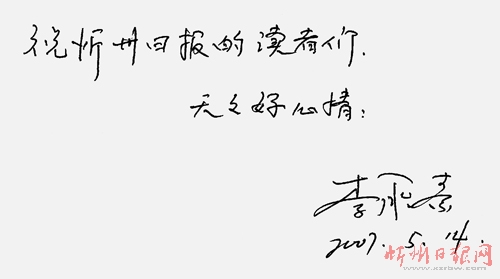 祝忻州日报的读者们.
天天好心情;
李
2007.5.14.
忻州日报网